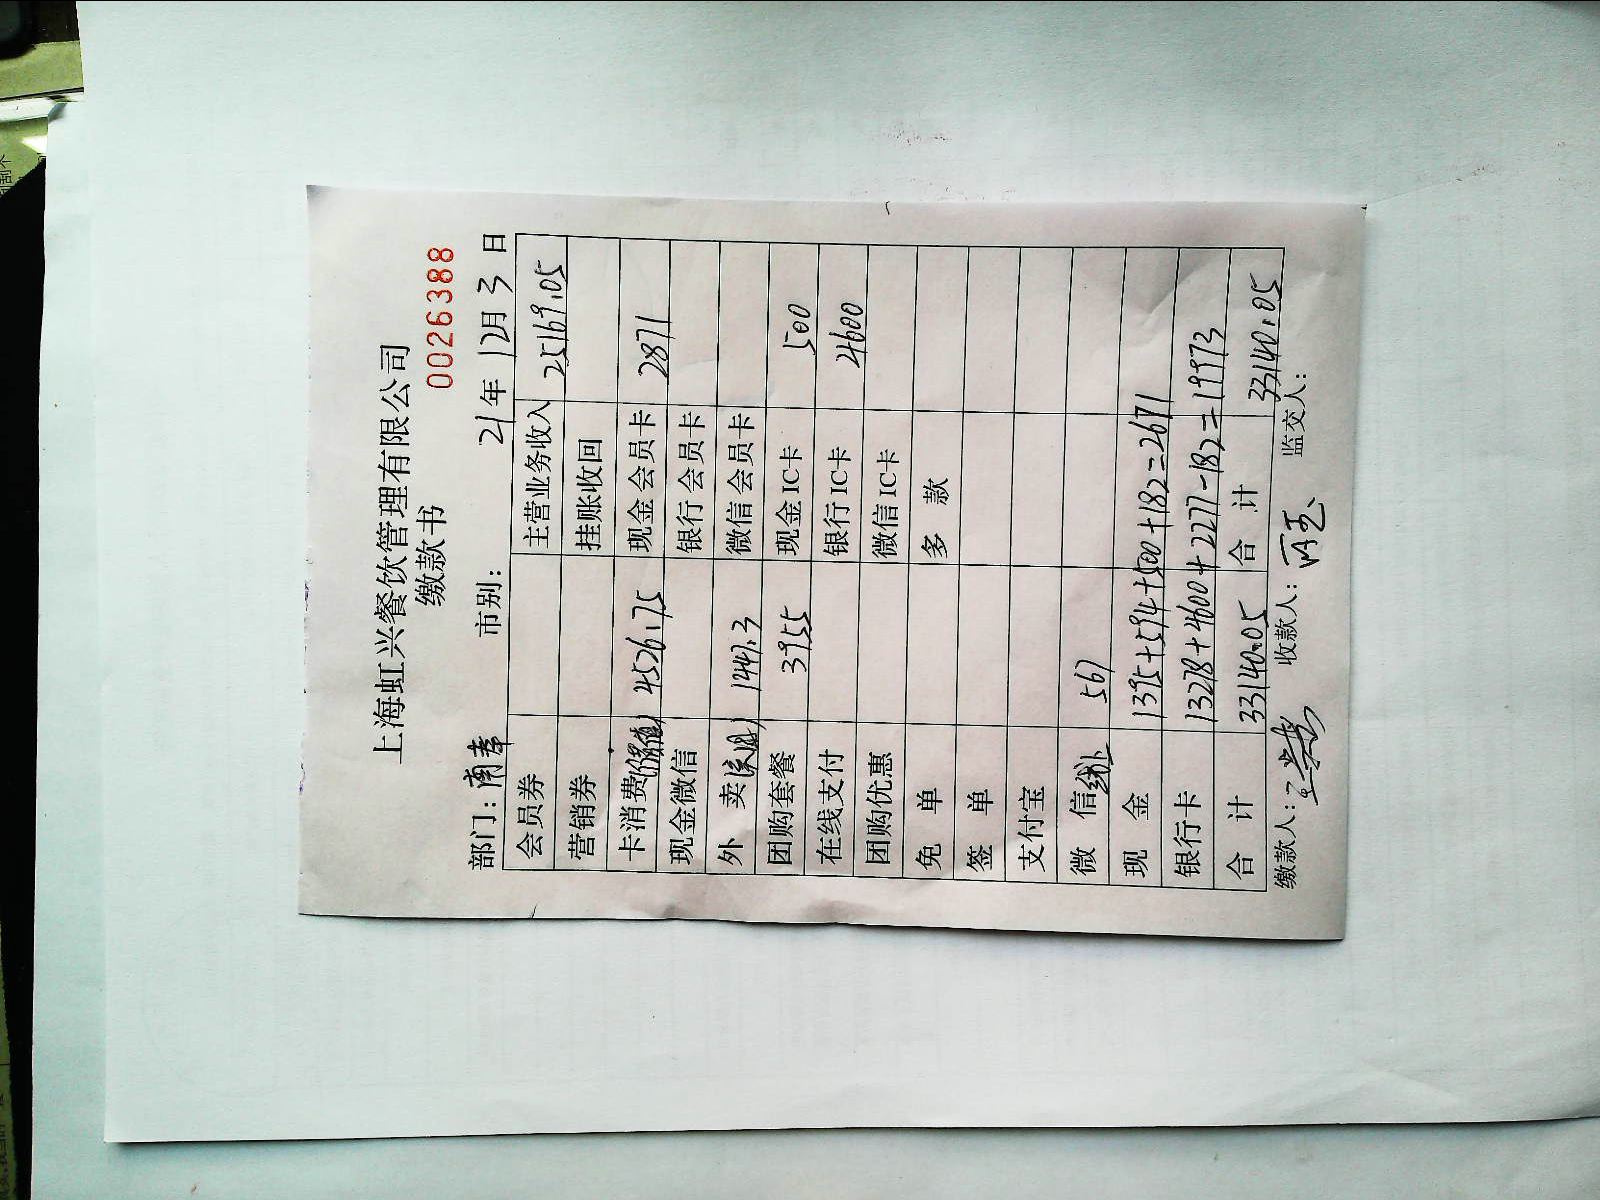 上海虹兴餐饮管理有限公司
缴款书 0026388
部门: 市别: 21年 12月 3日
会员券 主营业务收入 25169.05
营销券 挂账收回
卡消费 4526.75 现金会员卡 2871
现金微信 银行会员卡
外 卖 1447.3 微信会员卡
团购套餐 3955 现金IC卡 500
在线支付 银行IC卡 4600
团购优惠 微信IC卡
免 单 多 款
签 单
支付宝
微 信线上 567
现 金 1395+594+500+182=2671
银行卡 13278+4600+2277-182=19973
合 计 33140.05 合 计 33140.05
缴款人: 收款人: 监交人: